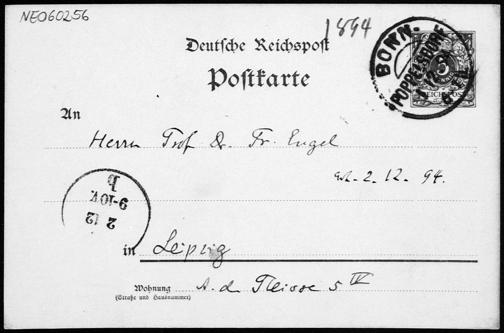 NEO60256
1894
Deutsche Reichspost
Postkarte
BONN.
POPPELSDORF
REICHSPOST
5
An
Herrn Prof Dr. Fr. Engel
2.12.94.
2 12
9-10V.
b
in Leipzig
Wohnung A. d. Pleisse 5 IV
(Straße und Hausnummer)